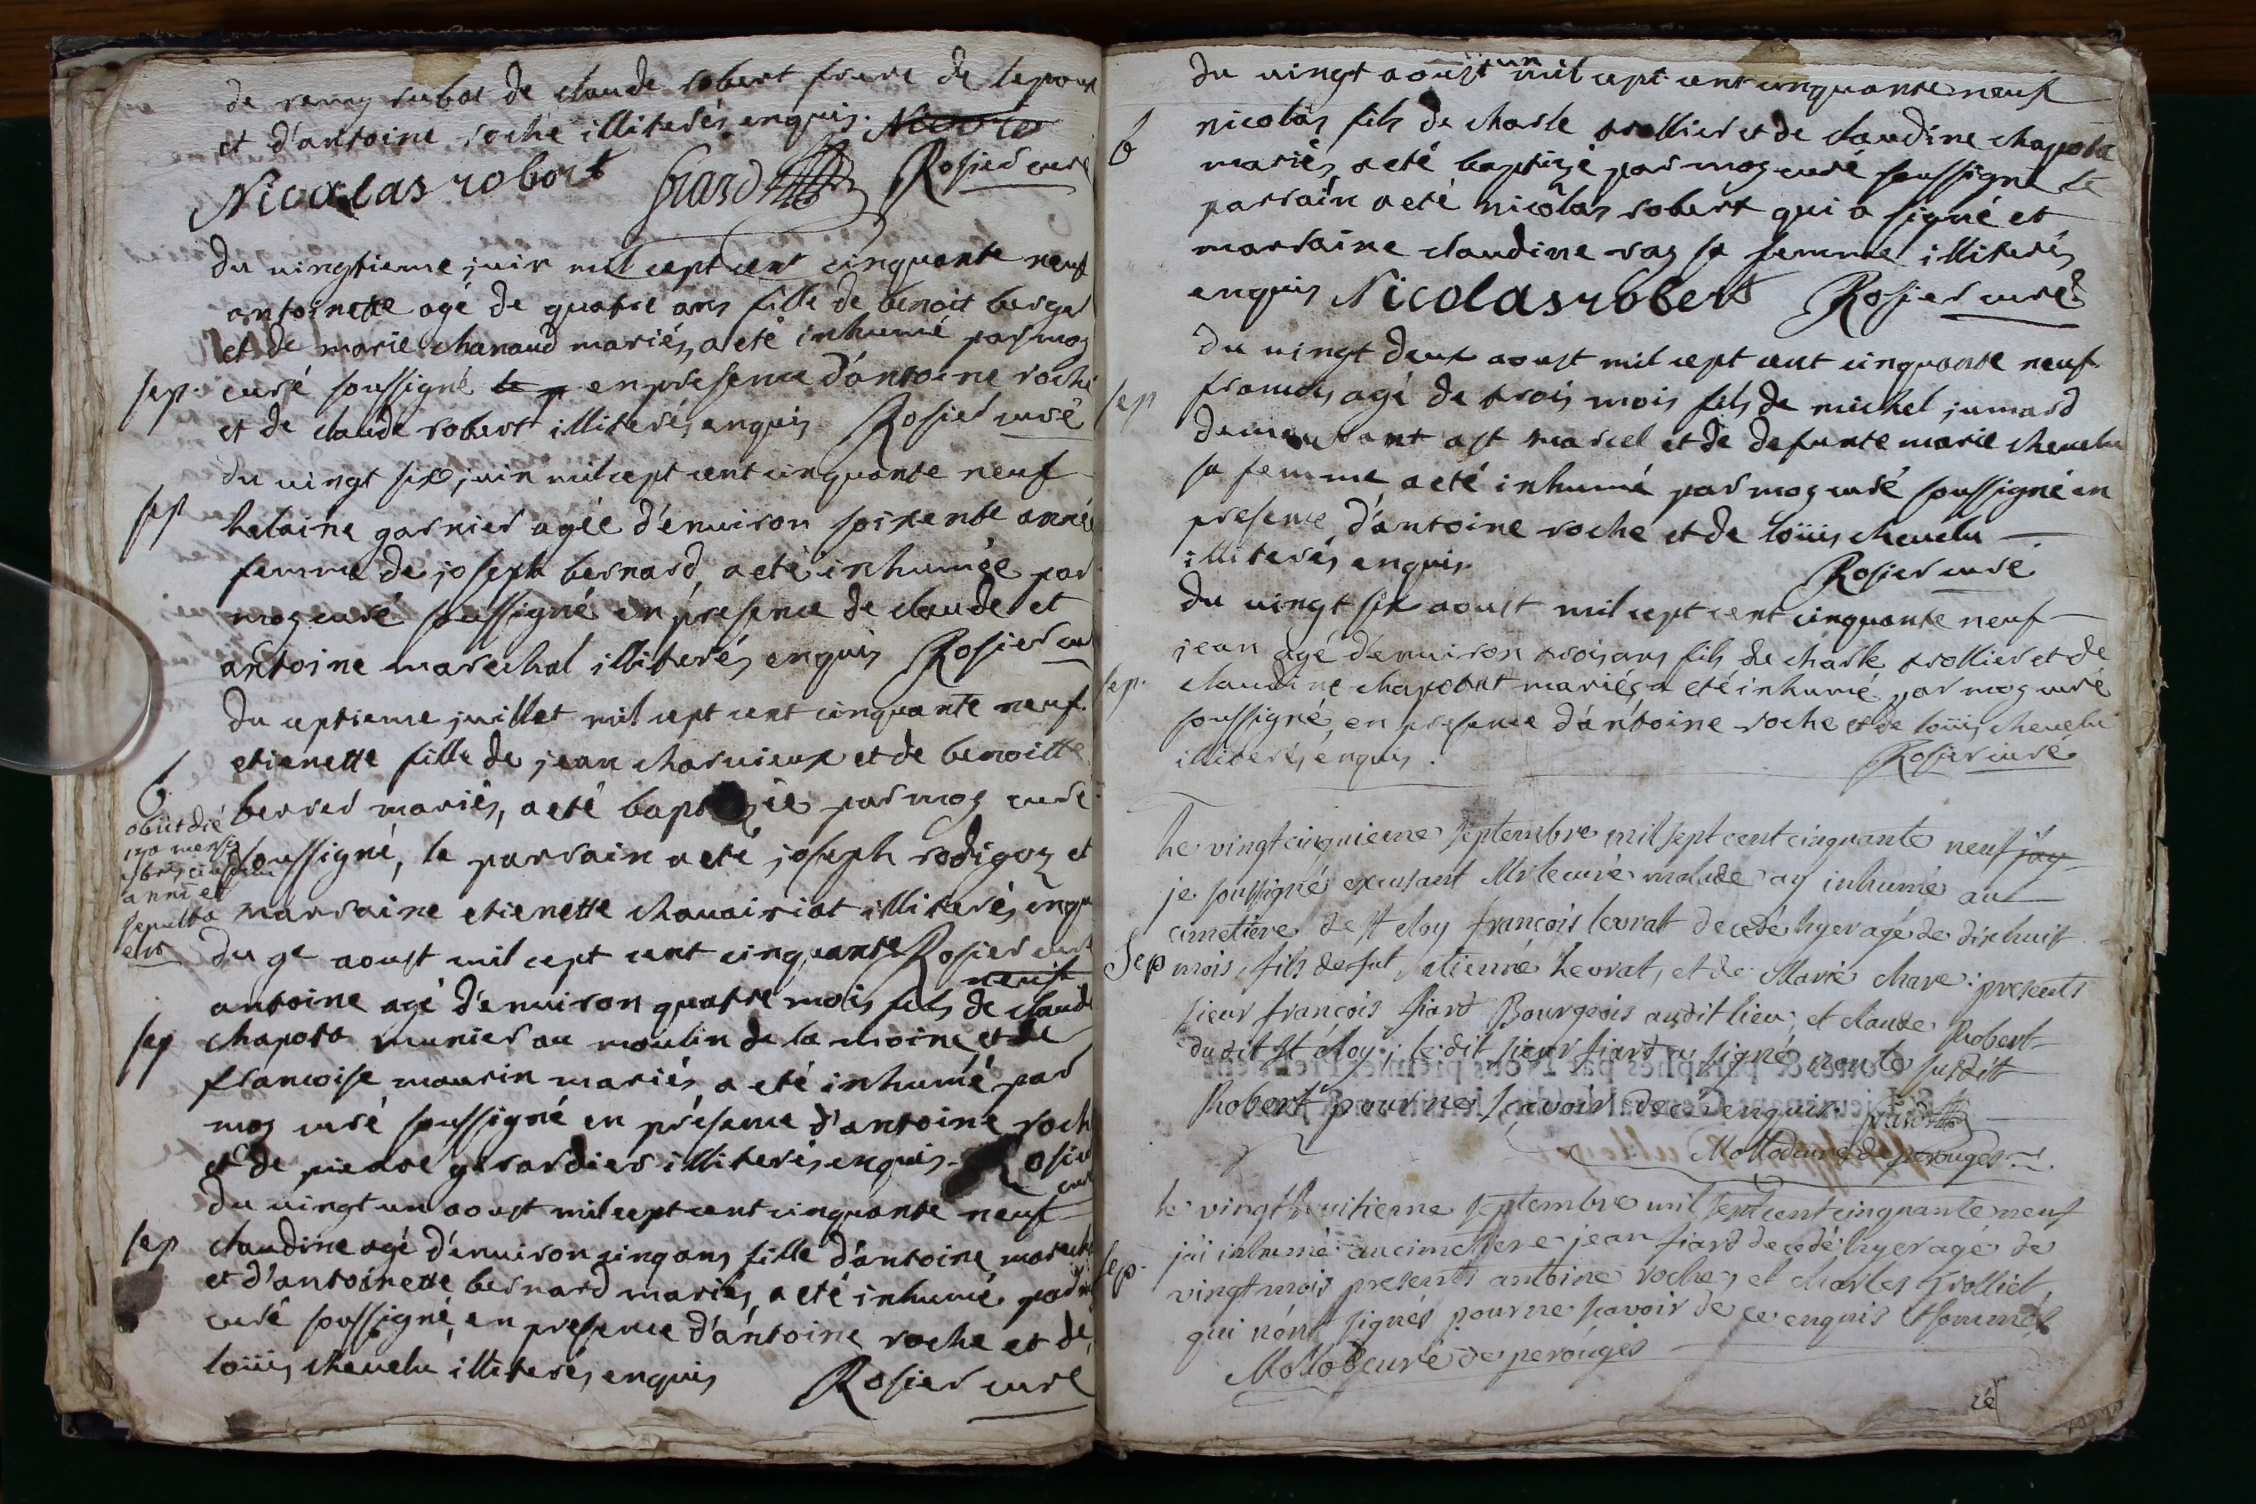 de remy rubat de claude robert frere de lepoux
et d'antoine roche illiterés enquis. Nicolas
Nicolas robert fiard Rosier curé
du vingtieme juin mil cept cent cinquante neuf
antoinette agé de quatre ans fille de benoit berger
et de marie chanaud mariés, a eté inhumé par moy
sep. curé soussigné le p en presence d'antoine roche
et de claude robert illiterés enquis Rosier curé
du vingt six juin mil cept cent cinquante neuf
sep helaine garnier agée d'environ soixente année
femme de joseph bernard, a eté inhumée par
moy curé soussigné en presence de claude et
antoine marechal illiterés enquis Rosier cu
du ceptieme juillet mil cept cent cinquante neuf.
etienette fille de jean charvieux et de benoitte
b berrer mariés, a eté baptisée par moy curé
obiit die
soussigné, le parrain a eté joseph rodigoz et
anni et
sepulta
est
marraine etienette chavairiat illiterés enqu
du 9e aoust mil cept cent cinquante Rosier curé
neuf
antoine agé d'environ quatre mois fils de claude
sep chapota munier au moulin de la moine et de
francoise maurin mariés a eté inhumé par
moy curé soussigné en présence d'antoine roch
et de pierre girardier illiterés enquis. Rosier
curé
du vingt un aoust mil cept cent cinquante neuf
sep claudine agé d'environ cinq ans fille d'antoine marecha
et d'antoinette bernard mariés, a eté inhumé par m
curé soussigné, en presence d'antoine roche et de
loüis chevelu illiterés enquis Rosier curé
du vingt un aoust mil cept cent cinquante neuf
b nicolas fils de charle trollier et de claudine chapota
mariés, a eté baptizé par moy curé soussigné le
parrain a eté nicolas robert qui a signé et
marraine claudine ray sa femme illiterés
enquis Nicolas robert Rosier curé
du vingt deux aoust mil cept cent cinquante neuf
sep francois agé de trois mois fils de michel jumard
demeurant a st marcel et de defunte marie chevelu
sa femme a eté inhumé par moy curé soussigné en
presence d'antoine roche et de loüis chevelu
illiterés enquis.
Rosier curé
du vingt six aoust mil cept cent cinquante neuf
jean agé d'environ trois ans fils de charle trollier et de
sep. claudine chapotat mariés, a eté inhumé par moy curé
soussigné, en presence d'antoine roche et de loüis chevelu
illiterés enquis.
Rosier curé
Le vingt cinquieme septembre mil sept cent cinquante neuf jay
je soussigné excusant Mr le curé malade ay inhumé au
cimetiere de st eloy françois levrat decedé hyer agé de dix huit
Sep mois, fils de fut etienne Levrat, et de Marie chave: presents
sieur françois fiard Bourgeois au dit lieu, et claude Robert
du dit st éloy; le dit sieur fiard a signé non le susdit
Robert pour ne sçavoir de ce enquis. fiard
Mollod curé de perouges
le vingt huitieme septembre mil sept cent cinquante neuf
sep. j'ai inhumé au cimettere jean fiard decedé hyer agé de
vingt mois presents antoine roche, et charles Trolliet
qui n'ont signés pour ne scavoir de ce enquis et sommés
Mollod curé de perouges